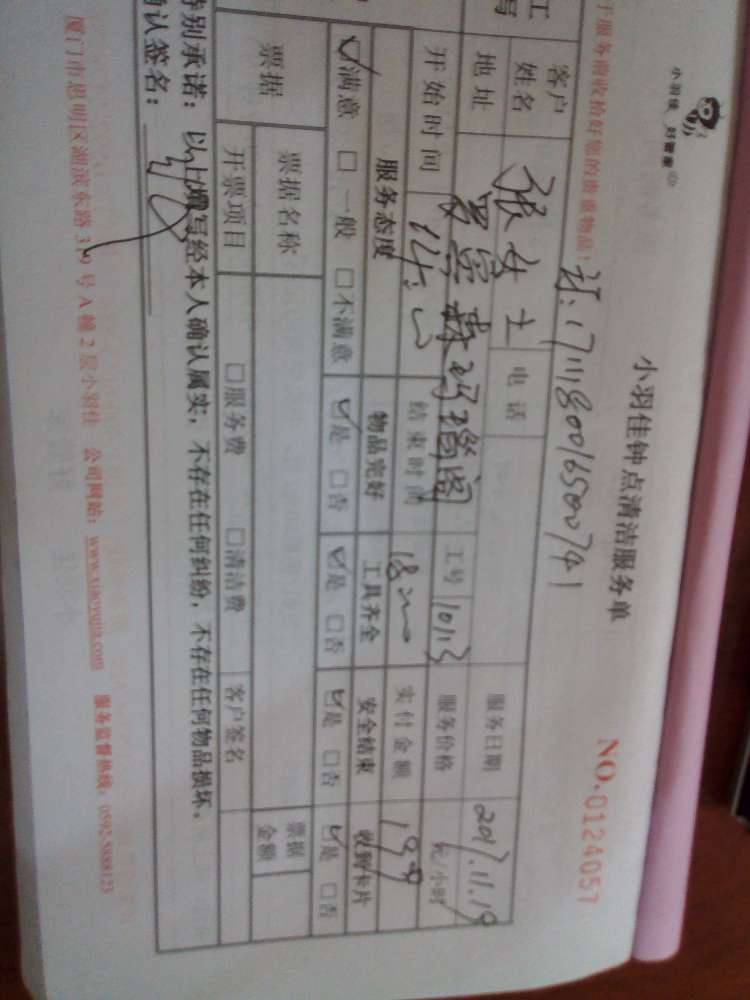 小羽佳 好管家
小羽佳钟点清洁服务单
NO.0124057
于服务前收拾好您的贵重物品!
1711180016500741
工
写
客户姓名 张女士 电话 服务日期 2017.11.19
地址 工号 10113 服务价格 元/小时
开始时间 结束时间 18:00 实付金额
服务态度 物品完好 工具齐全 安全结束 收到卡片
☑满意 □一般 □不满意 ☑是 □否 ☑是 □否 ☑是 □否 ☑是 □否
票据 票据名称 票据金额
开票项目 □服务费 □清洁费 客户签名
特别承诺:以上填写经本人确认属实,不存在任何纠纷,不存在任何物品损坏。
确认签名:
厦门市思明区湖滨东路319号A幢2层小羽佳 公司网站:www.xiaoyujia.com 服务监督热线:0592-5888123